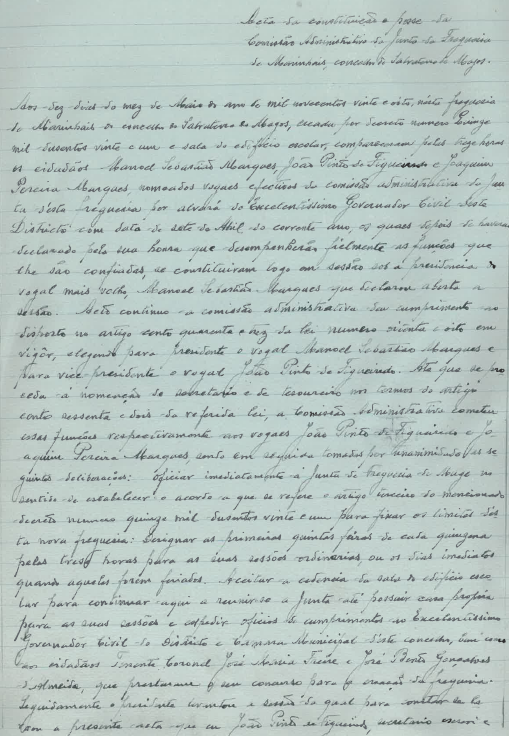 Acta da constituição e posse da
Comissão Administrativa da Junta da Freguesia
de Marinhais, concelho de Salvaterra de Magos.
Aos dez dias do mez de Maio do ano de mil novecentos vinte e oito, nesta freguesia
de Marinhais do concelho de Salvaterra de Magos, creada por decreto numero quinze
mil dusentos vinte e um e sala do edificio escolar, compareceram pelas treze horas
os cidadãos Manoel Sebastião Marques, João Pinto de Figueiredo e Joaquim
Pereira Marques, nomeados vogaes efectivos da comissão administrativa da Jun
ta desta freguesia por alvará do Excelentissimo Governador Civil deste
Districto com data de sete de Abril do corrente ano, os quaes depois de haverem
declarado pela sua honra que desempenharão fielmente as funções que
lhe são confiadas, se constituiram logo em sessão sob a presidencia do
vogal mais velho, Manoel Sebastião Marques que declarou aberta a
sessão. Acto continuo a comissão administrativa deu cumprimento ao
disposto no artigo cento quarenta e dez da lei numero oitenta e oito em
vigôr, elegendo para presidente o vogal Manoel Sebastião Marques e
para vice presidente o vogal João Pinto de Figueiredo. Até que se pro
ceda a nomeação de secretario e de tesoureiro nos termos do artigo
cento sessenta e dois da referida lei, a Comissão Administrativa cometeu
essas funções respectivamente aos vogaes João Pinto de Figueiredo e Jo
aquim Pereira Marques, sendo em seguida tomadas por unanimidade as se
guintes deliberações: oficiar imediatamente á Junta de Freguesia de Muge no
sentido de estabelecer o acordo a que se refere o artigo terceiro do mencionado
decreto numero quinze mil dusentos vinte e um para fixar os limites des
ta nova freguesia: designar as primeiras quintas feiras de cada quinzena
pelas treze horas para as suas sessões ordinarias, ou os dias imediatos
quando aquelas forem feriados. Aceitar a cedencia da sala do edificio esco
lar para continuar aqui a reunir-se a Junta até possuir casa propria
para as suas sessões e expedir oficios de cumprimentos ao Excelentissimo
Governador Civil do Distrito e Camara Municipal deste concelho, bem como
aos cidadãos Tenente Coronel José Maria Freire e José Bento Gonçalves
d'Almeida, que prestaram o seu concurso para a creação da freguesia.
Seguidamente o presidente levantou a sessão da qual para constar se la
vrou a presente acta que eu João Pinto de Figueiredo, secretario escrevi e